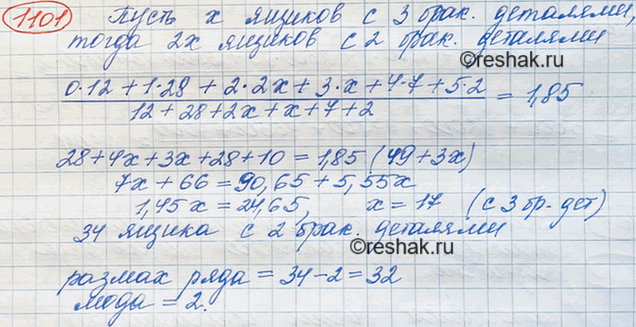 1101 Пусть x ящиков с 3 брак. деталями,
тогда 2x ящиков с 2 брак. деталями
0·12 + 1·28 + 2·2x + 3·x + 4·7 + 5·2
12 + 28 + 2x + x + 7 + 2
= 1,85
©reshak.ru
28 + 4x + 3x + 28 + 10 = 1,85 (49 + 3x)
7x + 66 = 90,65 + 5,55x
1,45x = 24,65, x = 17 (с 3 бр. дет)
34 ящика с 2 брак. деталями
©reshak.ru
размах ряда = 34 - 2 = 32
мода = 2.